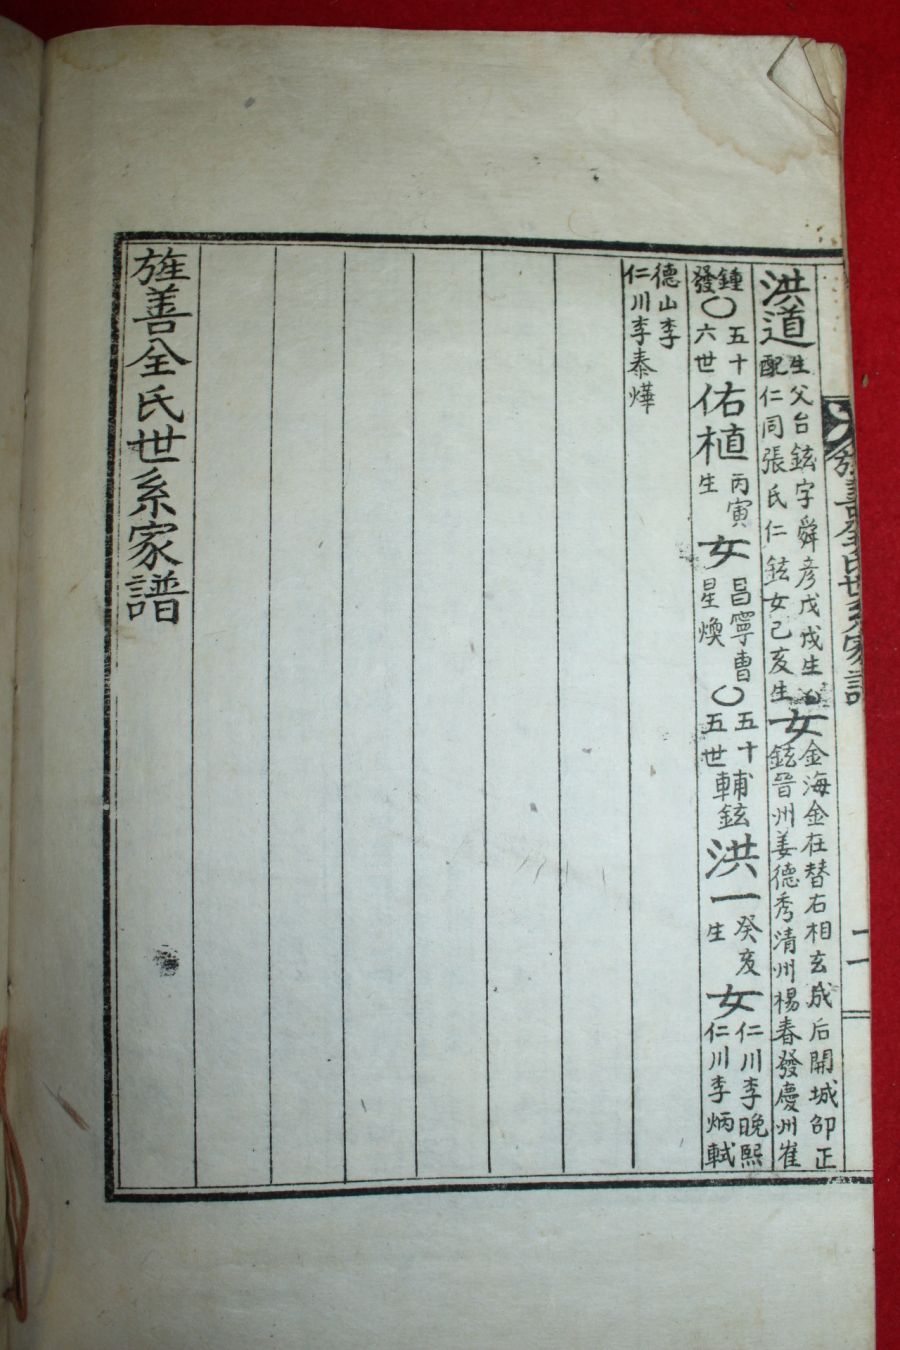 旌善全氏世系家譜
洪道 生父台鉉字舜彦戊戌生 配仁同張氏仁鉉女己亥生 女 金海金在替右相玄成后開城邵正鉉晉州姜德秀清州楊春發慶州崔
鍾發〇五十六世 佑植 丙寅生 女 昌寧曺星煥〇五十五世 輔鉉 洪一 癸亥生 女 仁川李晚熙仁川李炳軾
德山李
仁川李泰燁
旌善全氏世系家譜